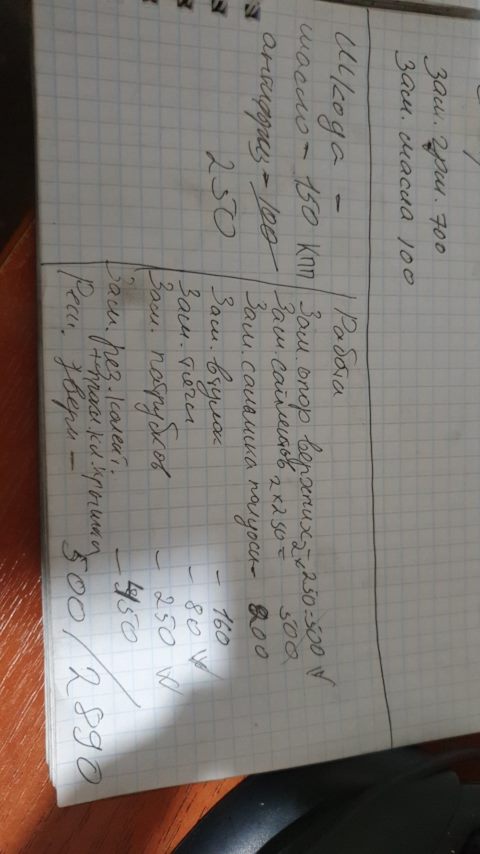 Зам. грм. 700
Зам. масла 100
Шкода -
масло - 150 КПП
антифриз - 100
250
Работа
Зам. опор верхних 2 x 250 = 500 V
Зам. сайлентов 2 x 250 = 500
Зам. сальника полуоси - 200
Зам. втулок - 160
Зам. тяги - 80 V
Зам. патрубков - 250 V
Зам. рез. колец. - 450
+ прокл. кл. крышки
Рем. двери - 500 / 2890